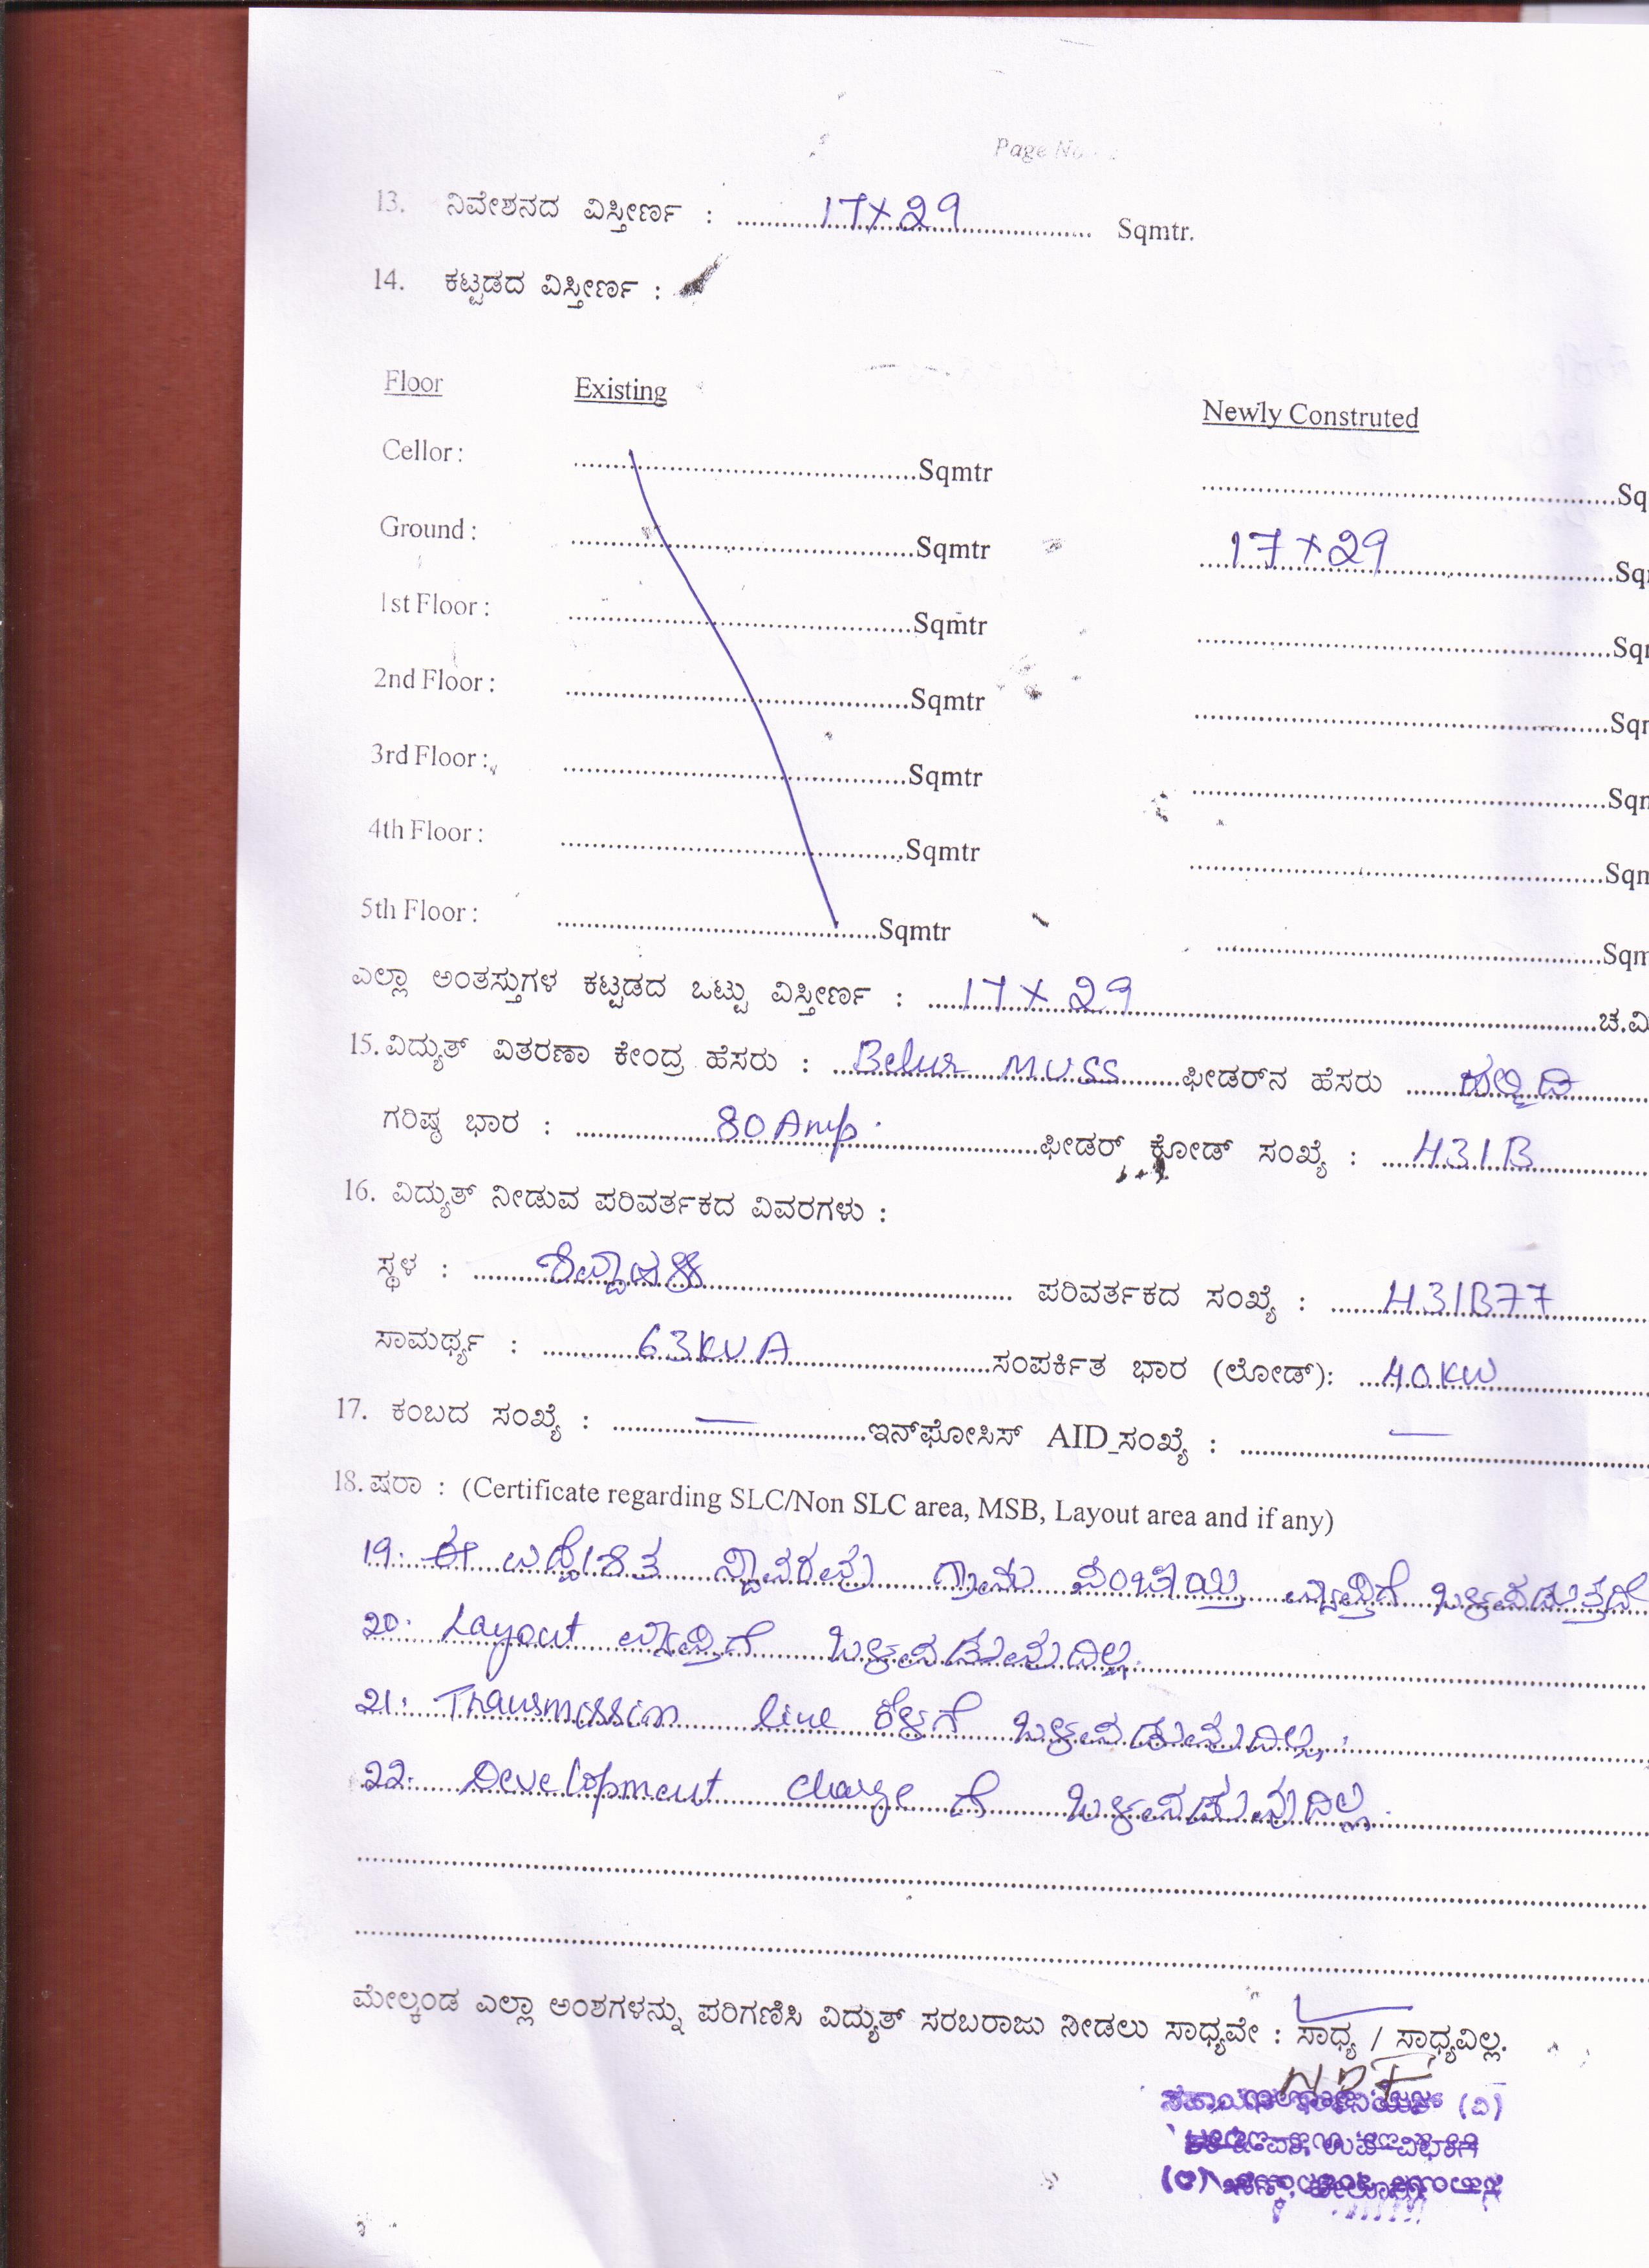 Page No
13. ನಿವೇಶನದ ವಿಸ್ತೀರ್ಣ : 17×29 Sqmtr.
14. ಕಟ್ಟಡದ ವಿಸ್ತೀರ್ಣ :
Floor Existing Newly Construted
Cellor : Sqmtr Sq
Ground : Sqmtr 17×29 Sq
1st Floor : Sqmtr Sq
2nd Floor : Sqmtr Sq
3rd Floor : Sqmtr Sq
4th Floor : Sqmtr Sq
5th Floor : Sqmtr Sqm
ಎಲ್ಲಾ ಅಂತಸ್ತುಗಳ ಕಟ್ಟಡದ ಒಟ್ಟು ವಿಸ್ತೀರ್ಣ : 17×29 ಚ.ಮಿ
15. ವಿದ್ಯುತ್ ವಿತರಣಾ ಕೇಂದ್ರ ಹೆಸರು : Belur MUSS ಫೀಡರ್‌ನ ಹೆಸರು ಹಲ್ಮಿಡಿ
ಗರಿಷ್ಠ ಭಾರ : 80 Amp. ಫೀಡರ್ ಕೋಡ್ ಸಂಖ್ಯೆ : H31B
16. ವಿದ್ಯುತ್ ನೀಡುವ ಪರಿವರ್ತಕದ ವಿವರಗಳು :
ಸ್ಥಳ : ಪರಿವರ್ತಕದ ಸಂಖ್ಯೆ : H31B77
ಸಾಮರ್ಥ್ಯ : 63 KVA ಸಂಪರ್ಕಿತ ಭಾರ (ಲೋಡ್): 40 KW
17. ಕಂಬದ ಸಂಖ್ಯೆ : — ಇನ್‌ಫೋಸಿಸ್ AID_ಸಂಖ್ಯೆ : —
18. ಷರಾ : (Certificate regarding SLC/Non SLC area, MSB, Layout area and if any)
19. ಈ ಉದ್ದೇಶಿತ ಸ್ಥಾವರವು ಗ್ರಾಮ ಪಂಚಾಯ್ತಿ ವ್ಯಾಪ್ತಿಗೆ ಒಳಪಡುತ್ತದೆ
20. Layout ವ್ಯಾಪ್ತಿಗೆ ಒಳಪಡುವುದಿಲ್ಲ.
21. Transmission line ಕೆಳಗೆ ಒಳಪಡುವುದಿಲ್ಲ.
22. Development charge ಗೆ ಒಳಪಡುವುದಿಲ್ಲ.
ಮೇಲ್ಕಂಡ ಎಲ್ಲಾ ಅಂಶಗಳನ್ನು ಪರಿಗಣಿಸಿ ವಿದ್ಯುತ್ ಸರಬರಾಜು ನೀಡಲು ಸಾಧ್ಯವೇ : ಸಾಧ್ಯ / ಸಾಧ್ಯವಿಲ್ಲ.
(ವಿ)